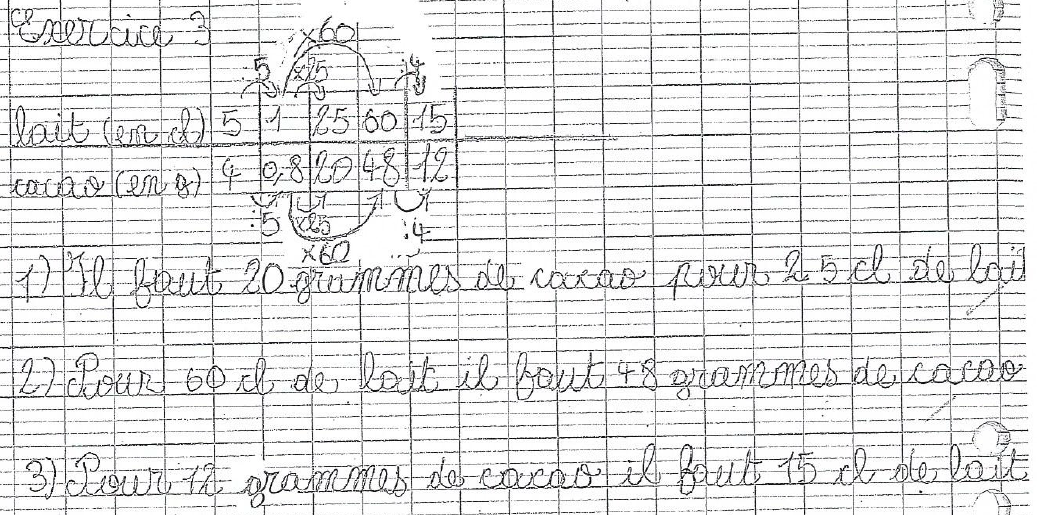 Exercice 3
x60
:5 x25 :4
lait (en cl) 5 1 25 60 15
cacao (en g) 4 0,8 20 48 12
:5 x25 :4
x60
1) Il faut 20 grammes de cacao pour 25 cl de lait
2) Pour 60 cl de lait il faut 48 grammes de cacao
3) Pour 12 grammes de cacao il faut 15 cl de lait